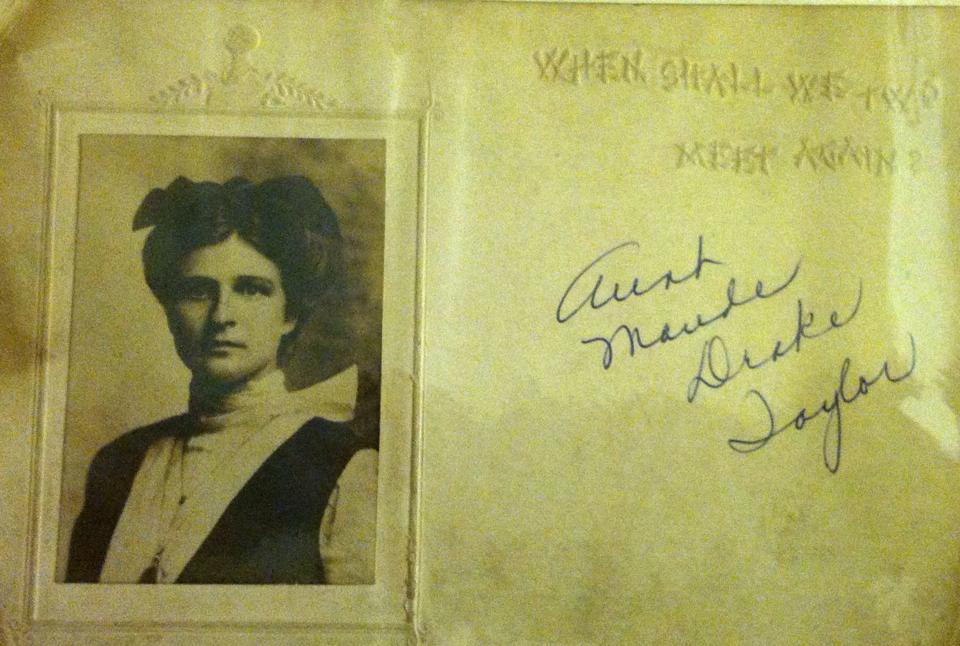 WHEN SHALL WE TWO
MEET AGAIN?
Aunt
Maude
Drake
Taylor